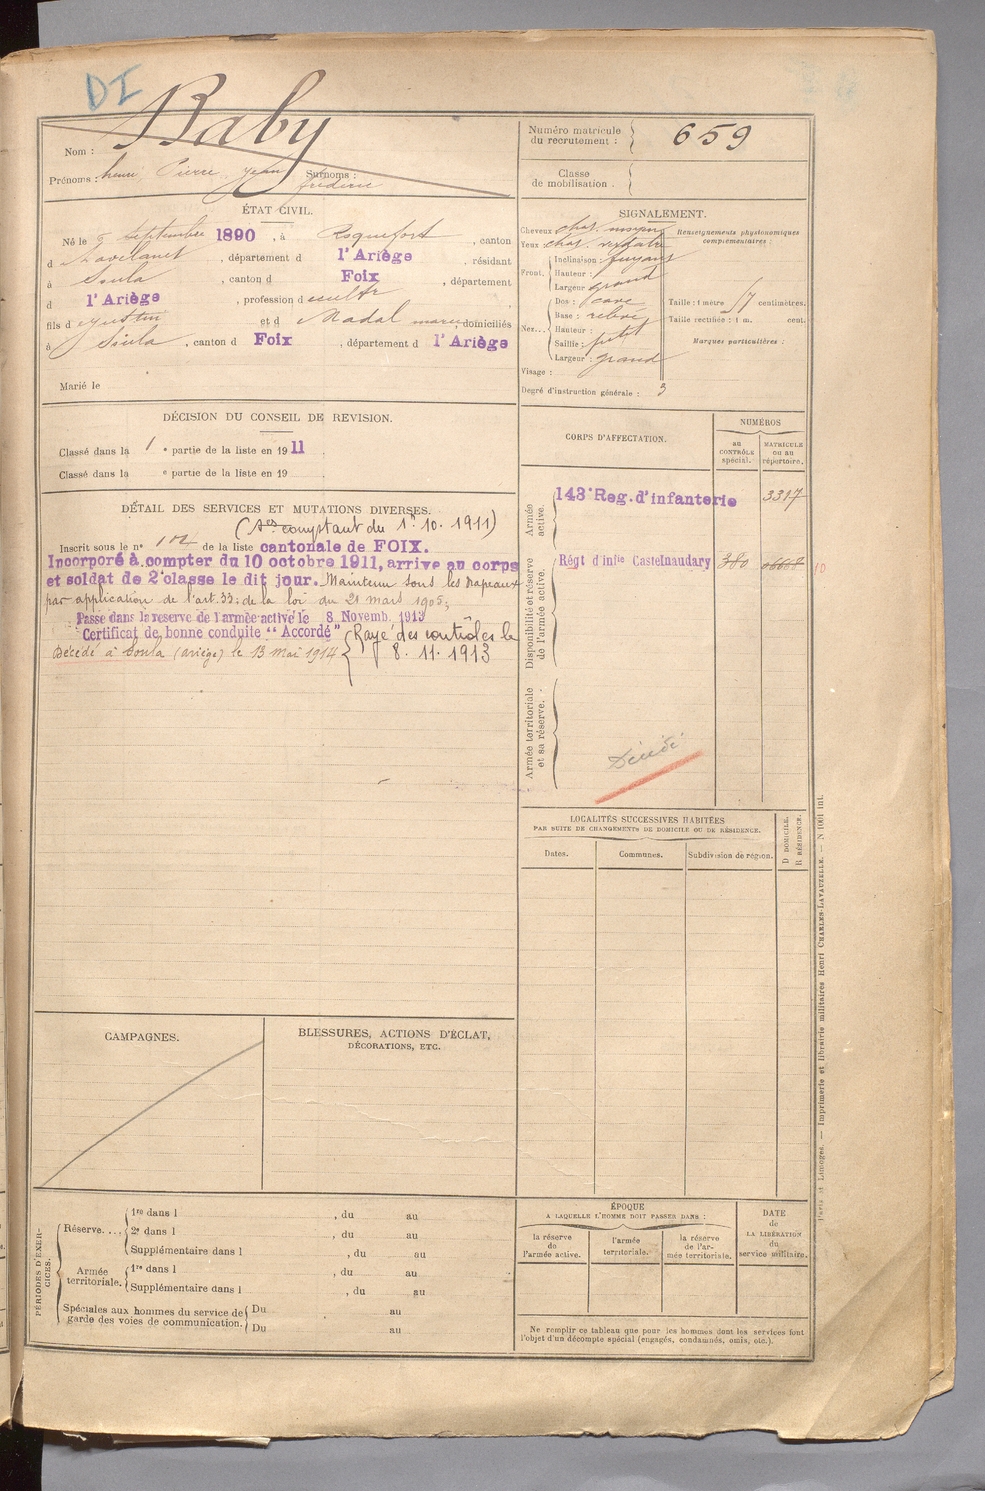 DI
Nom : Baby
Prénoms : henri Pierre jean Surnoms :
frédéric
Numéro matricule
du recrutement : 659
Classe
de mobilisation .
ÉTAT CIVIL.
Né le 9 septembre 1890 , à Roquefort , canton
d Lavelanet , département d l'Ariège , résidant
à Soula , canton d Foix , département
d l'Ariège , profession d cultr
fils d et d Nadal marie domiciliés
à Soula , canton d Foix , département d l'Ariège
Marié le
SIGNALEMENT.
Cheveux chat. moyen
Yeux : chat. verdatre
Front. Inclinaison : fuyant
Hauteur :
Largeur : grand
Nez... Dos : cave
Base : relevé
Hauteur :
Saillie : petit
Largeur : grand
Visage :
Degré d'instruction générale : 3
Renseignements physionomiques
complémentaires :
Taille : 1 mètre 57 centimètres.
Taille rectifiée : 1 m. cent.
Marques particulières :
DÉCISION DU CONSEIL DE REVISION.
Classé dans la 1 e partie de la liste en 1911
Classé dans la e partie de la liste en 19
DÉTAIL DES SERVICES ET MUTATIONS DIVERSES.
(Ses comptant du 1er. 10. 1911)
Inscrit sous le n° de la liste cantonale de FOIX.
Incorporé à compter du 10 octobre 1911, arrive au corps
et soldat de 2e classe le dit jour. Maintenu sous les drapeaux
par application de l'art. 33 de la loi du 21 mars 1905;
Passé dans la reserve de l'armée active le 8 Novemb. 1913
Certificat de bonne conduite "Accordé" Rayé des contrôles le
8. 11. 1913
Décédé à Soula (ariège) le 13 Mai 1914
CORPS D'AFFECTATION.
NUMÉROS
au
CONTRÔLE
spécial.
MATRICULE
ou au
répertoire.
Armée
active.
143e Reg. d'infanterie 3317
Disponibilité et réserve
de l'armée active.
Régt d'infie Castelnaudary 380 10
Armée territoriale
et sa réserve.
Décédé
LOCALITÉS SUCCESSIVES HABITÉES
PAR SUITE DE CHANGEMENTS DE DOMICILE OU DE RÉSIDENCE.
Dates. Communes. Subdivision de région.
D DOMICILE.
R RÉSIDENCE.
CAMPAGNES.
BLESSURES, ACTIONS D'ÉCLAT,
DÉCORATIONS, ETC.
PÉRIODES D'EXER-
CICES.
Réserve....
1re dans l , du au
2e dans l , du au
Supplémentaire dans l , du au
Armée
territoriale.
1re dans l , du au
Supplémentaire dans l , du au
Spéciales aux hommes du service de
garde des voies de communication.
Du au
Du au
ÉPOQUE
A LAQUELLE L'HOMME DOIT PASSER DANS :
la réserve
de
l'armée active.
l'armée
territoriale.
la réserve
de l'ar-
mée territoriale.
DATE
de
LA LIBÉRATION
du
service militaire.
Ne remplir ce tableau que pour les hommes dont les services font
l'objet d'un décompte spécial (engagés, condamnés, omis, etc.).
Paris et Limoges. — Imprimerie et librairie militaires Henri CHARLES-LAVAUZELLE. — N 1001 int.